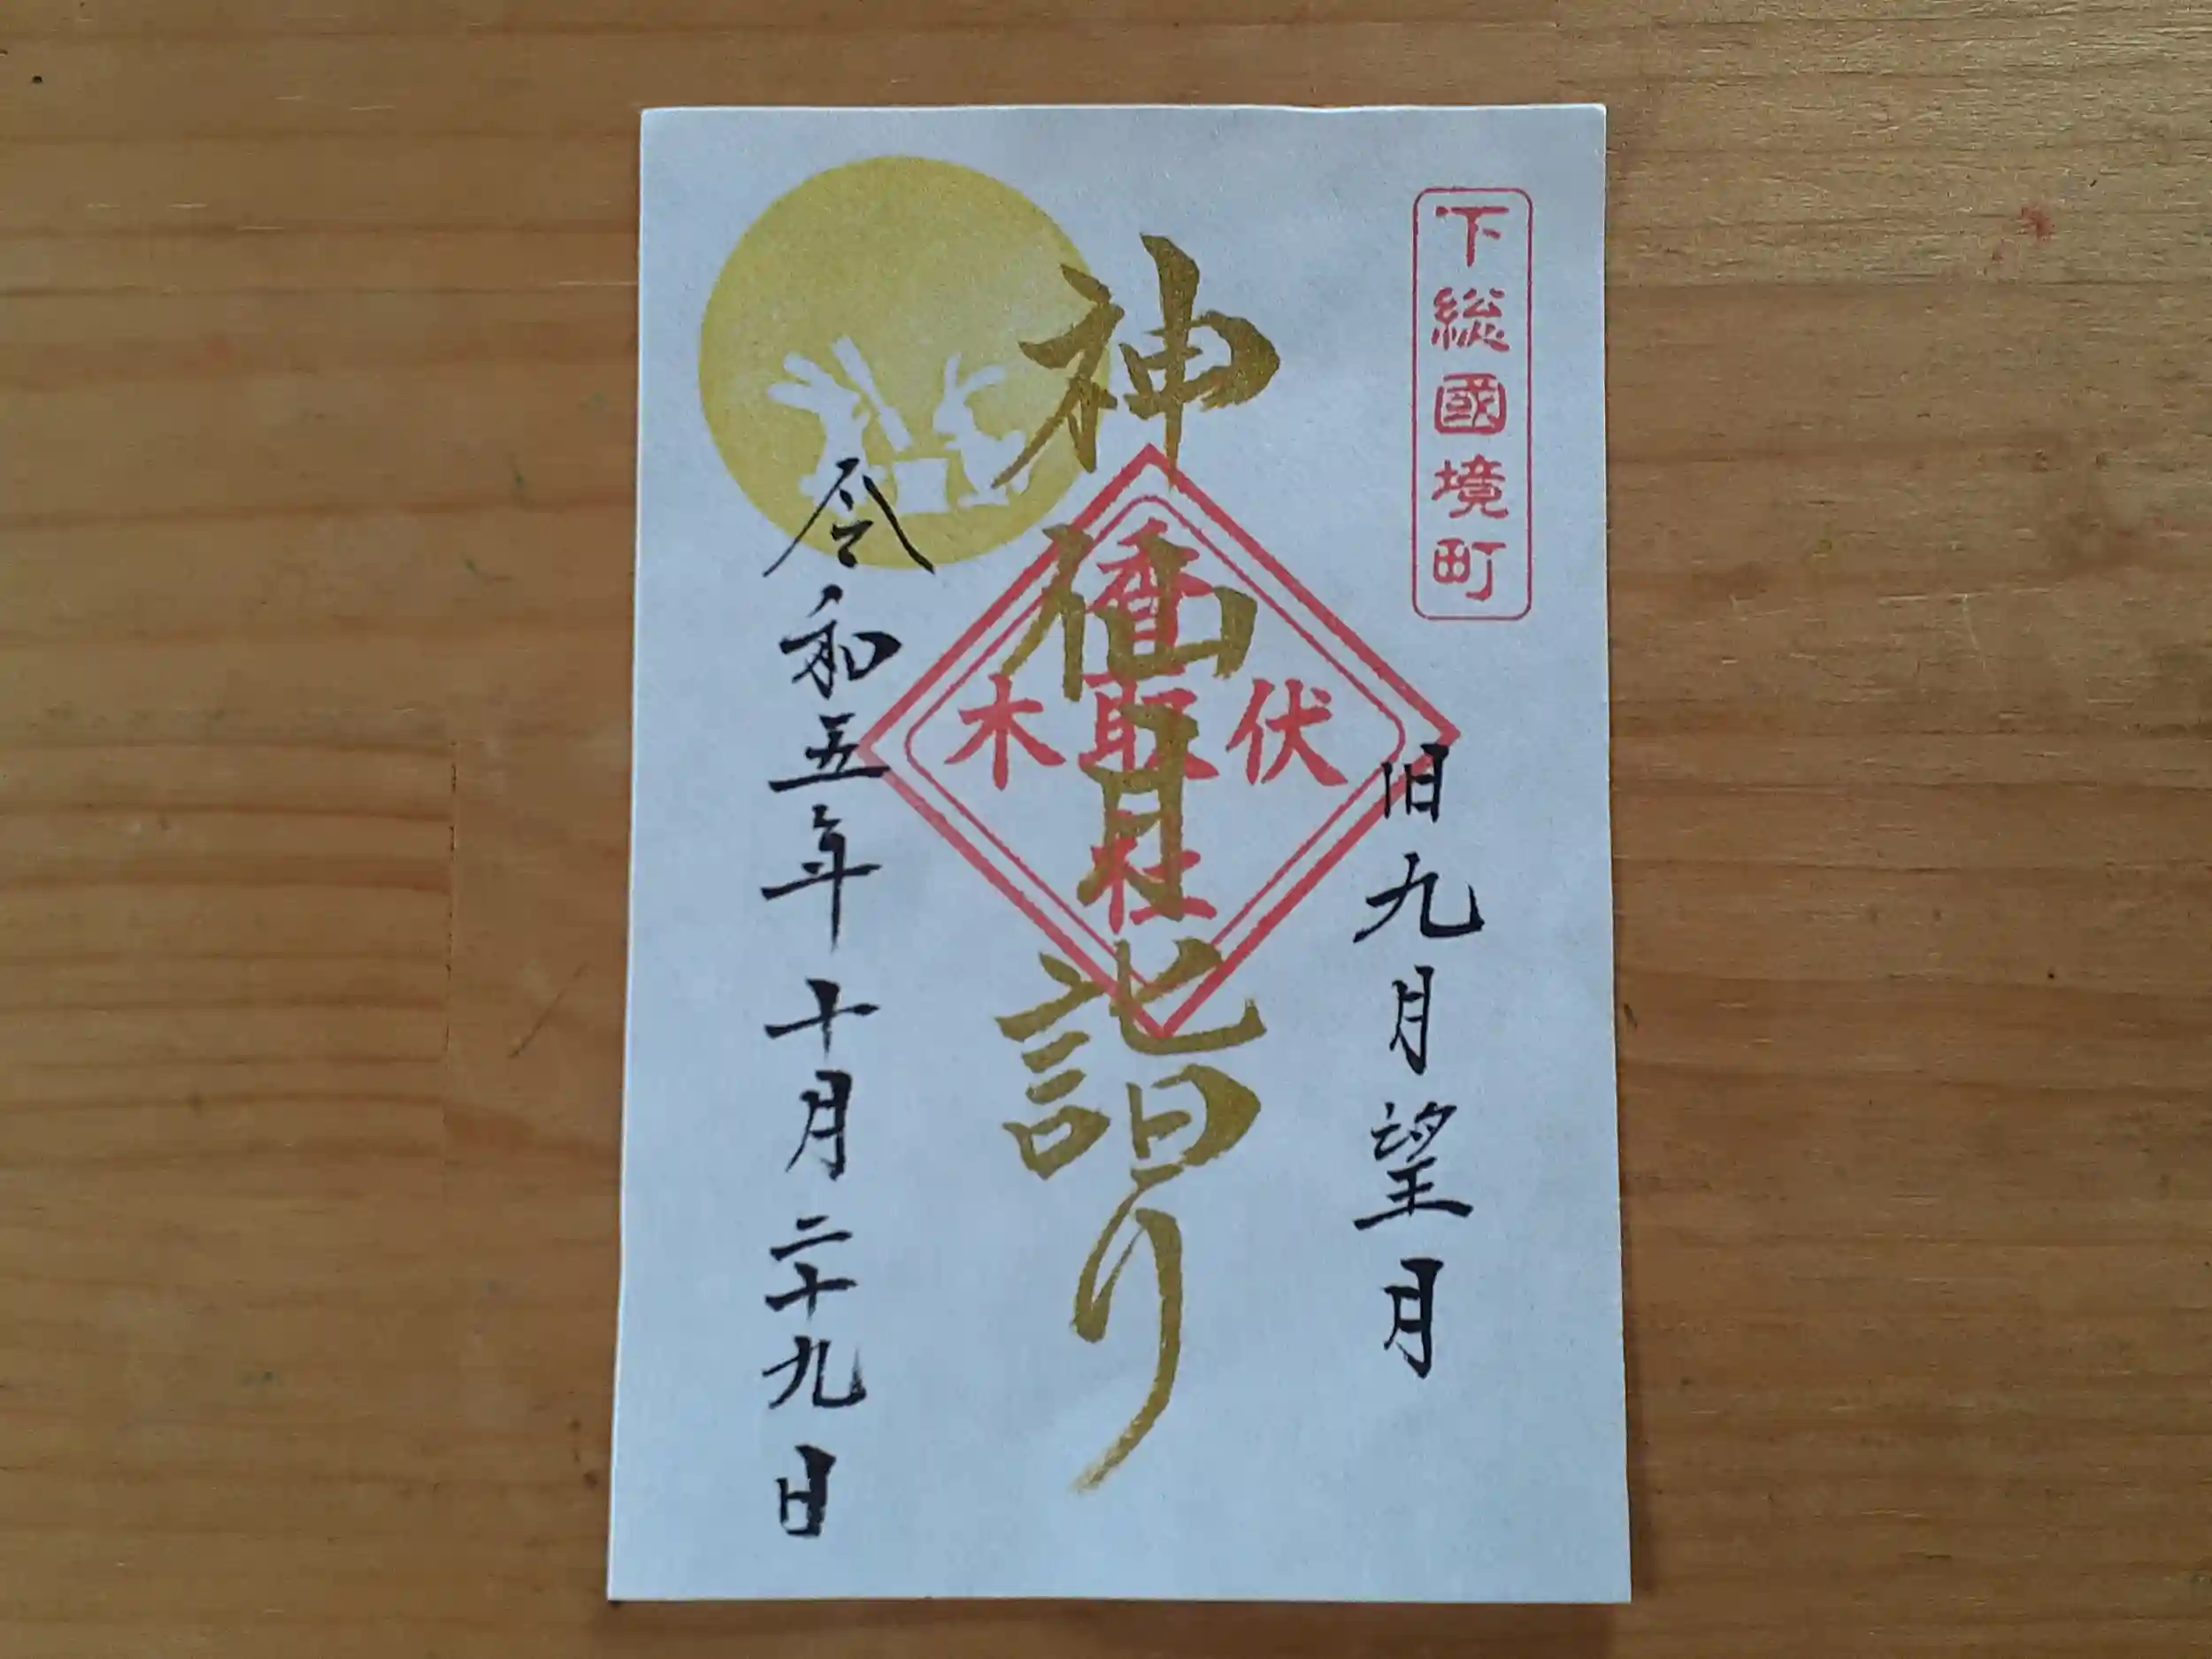 下総國境町
旧九月望月
神仙月詣り
伏木
香取社
令和五年十月二十九日